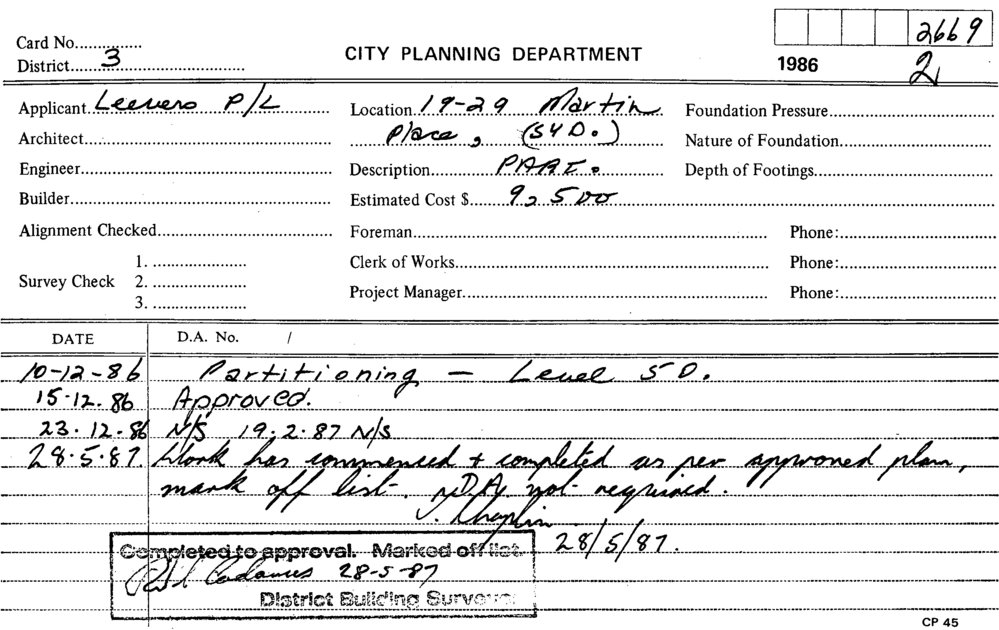 2669
Card No...............
District......3......
CITY PLANNING DEPARTMENT
1986
2
Applicant Leevers P/L
Location 19-29 Martin
Foundation Pressure
Architect
Place, (SYD.)
Nature of Foundation
Engineer
Description PART.
Depth of Footings
Builder
Estimated Cost $ 9,500
Alignment Checked
Foreman
Phone:
1.
Clerk of Works
Phone:
Survey Check 2.
Project Manager
Phone:
3.
DATE D.A. No. /
10-12-86 Partitioning — Level 5 D.
15.12.86 Approved.
23.12.86 N/S 19.2.87 N/S
28.5.87 Work has commenced + completed as per approved plan,
mark off list. D.A. not required.
28/5/87.
Completed to approval. Marked off list.
28-5-87
District Building Surveyor
CP 45